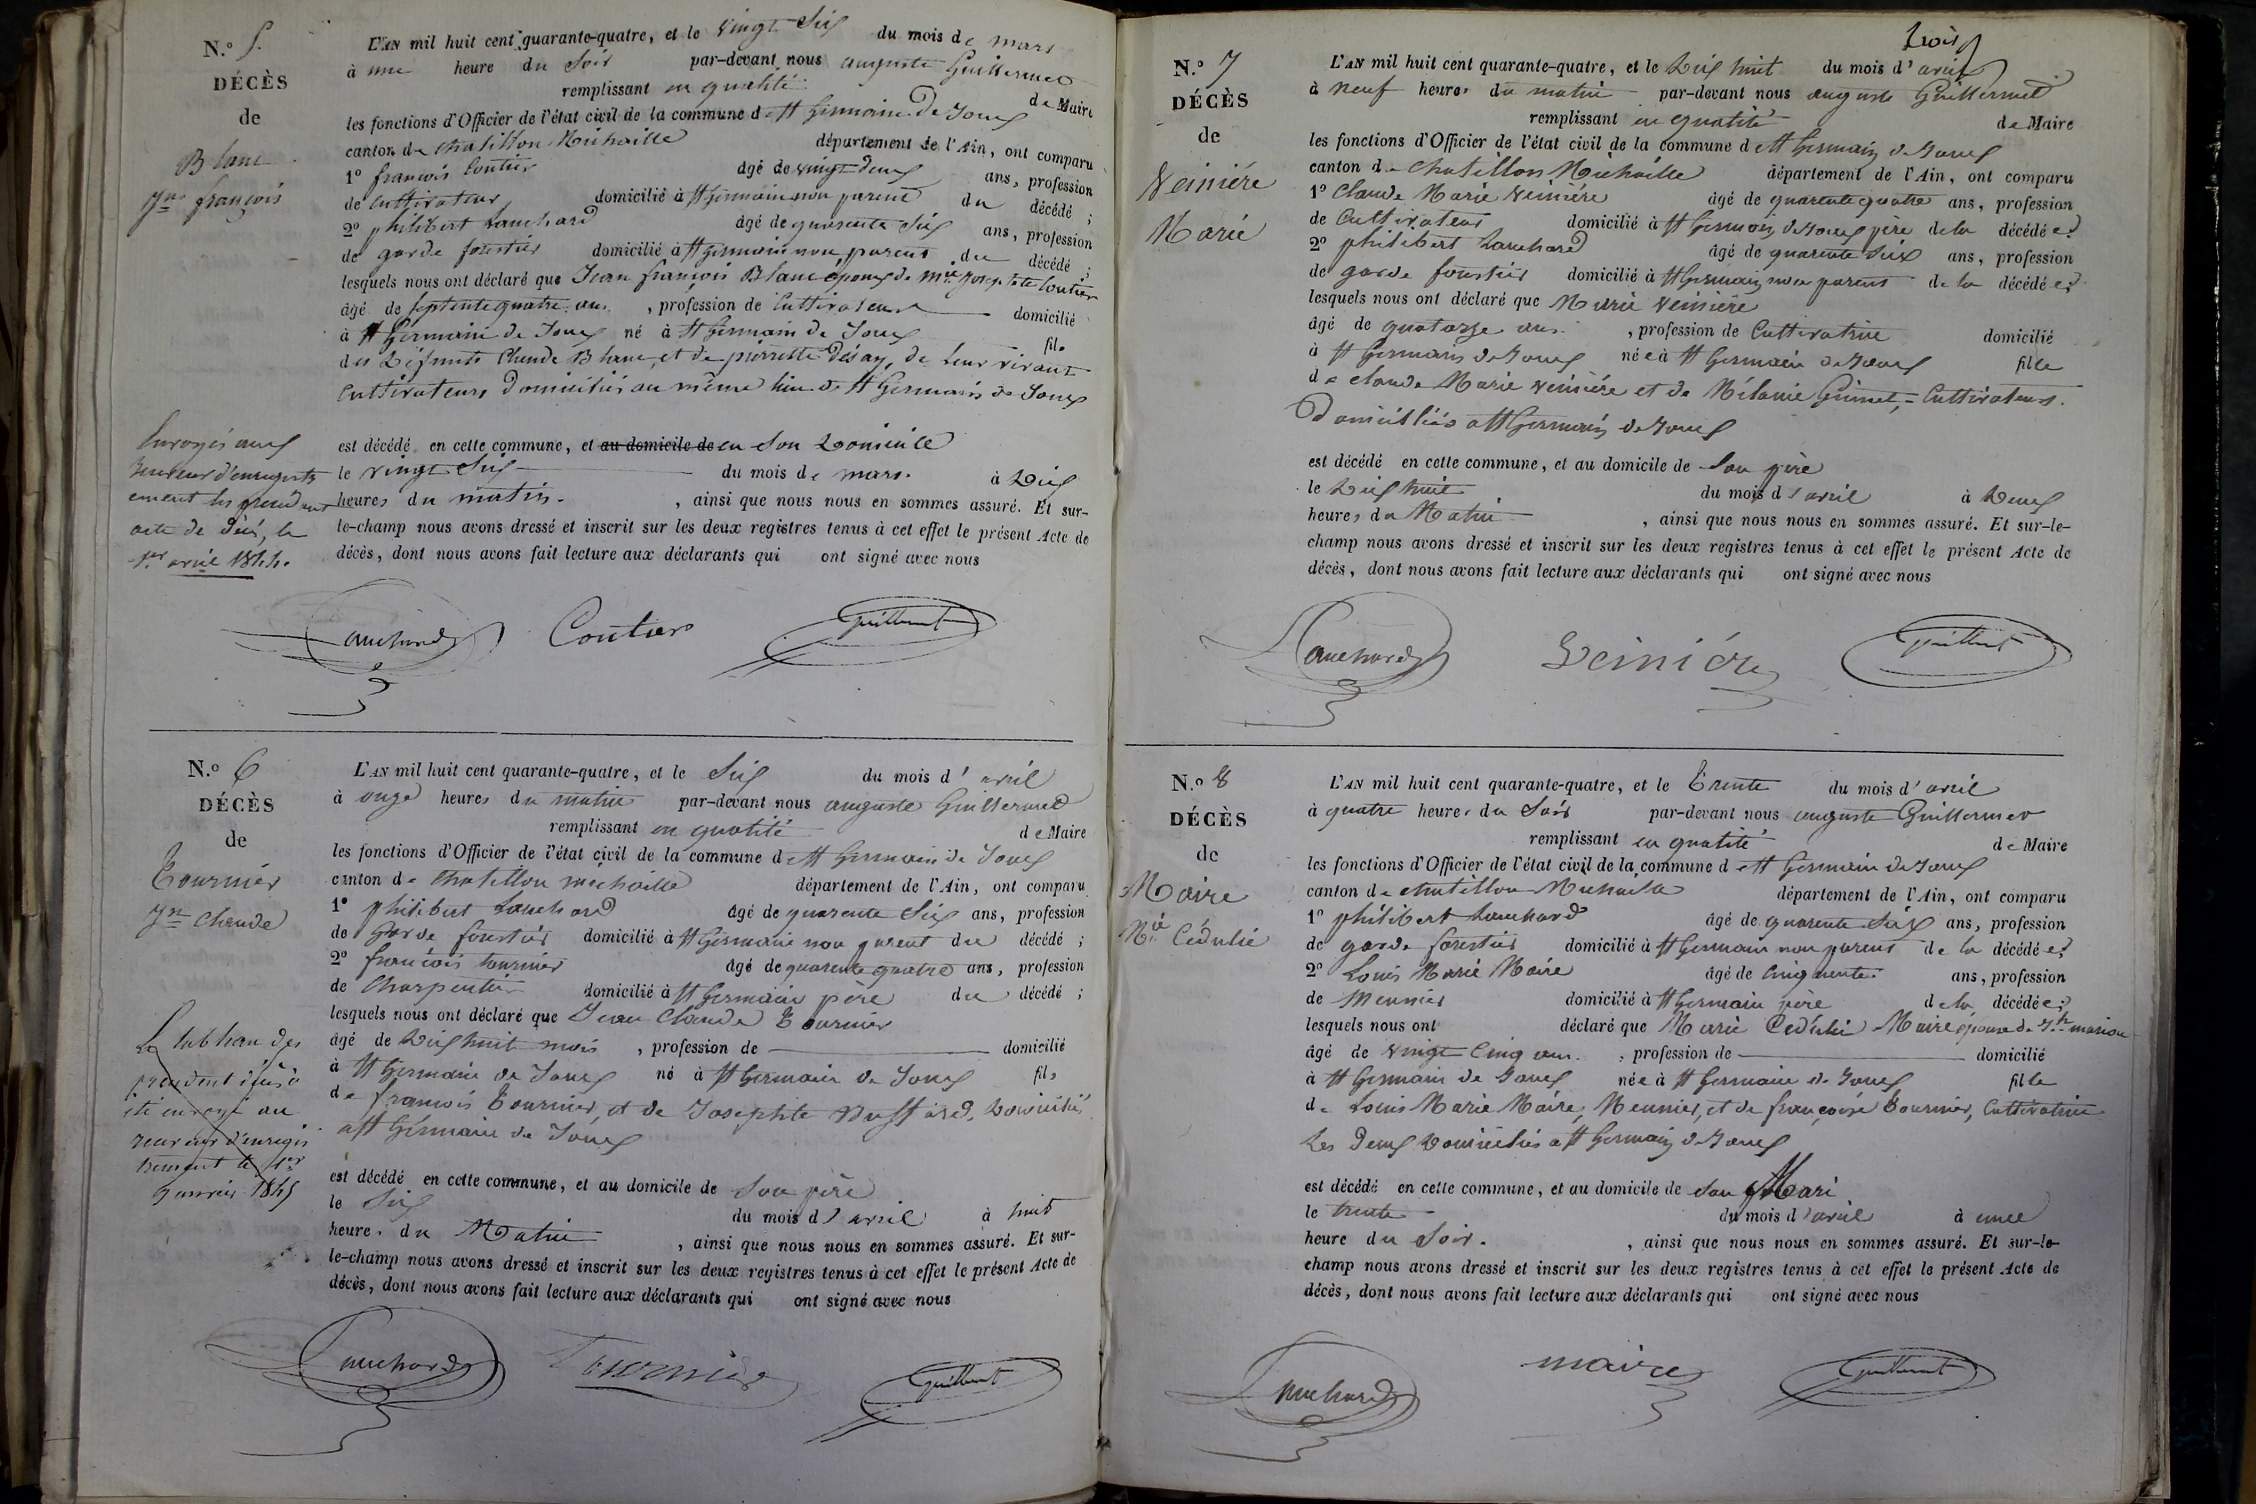 N.º 5.
DÉCÈS
de
Blanc
Jn. françois
L'AN mil huit cent quarante-quatre, et le vingt Six du mois de mars
à une heure du Soir par-devant nous auguste Guillermet
remplissant en qualité de Maire
les fonctions d'Officier de l'état civil de la commune de St Germain de Joux
canton de chatillon Michaille département de l'Ain, ont comparu
1º françois Coutier âgé de vingt deux ans, profession
de Cultivateur domicilié à St Germain non parent du décédé ;
2º philibert Lauchard âgé de quarente Six ans, profession
de garde forestier domicilié à St Germain non parent du décédé ;
lesquels nous ont déclaré que Jean françois Blanc époux de Mie Josephte Coutier
âgé de Septente quatre ans , profession de Cultivateur domicilié
à St Germain de Joux né à St Germain de Joux fils
des Défunts Claude Blanc, et de pierrette Désay, de leur vivant
Cultivateurs domiciliés au même lieu de St Germain de Joux
est décédé en cette commune, et au domicile de en Son Domicile
le vingt Six du mois de mars. à Dix
heures du matin. , ainsi que nous nous en sommes assuré. Et sur-
le-champ nous avons dressé et inscrit sur les deux registres tenus à cet effet le présent Acte de
décès, dont nous avons fait lecture aux déclarants qui ont signé avec nous
Envoyés aux
receveur d'enregistr
ement les presdent
acte de Décé, le
1er avril 1844.
Lauchard Coutier Guillermet
N.º 6
DÉCÈS
de
Tournier
Jn Claude
L'AN mil huit cent quarante-quatre, et le Six du mois d' avril
à onze heures du matin par-devant nous auguste Guillermet
remplissant en qualité de Maire
les fonctions d'Officier de l'état civil de la commune de St Germain de Joux
canton de Chatillon michaille département de l'Ain, ont comparu
1º philibert Lauchard âgé de quarente Six ans, profession
de Garde forestier domicilié à St Germain non parent du décédé ;
2º françois tournier âgé de quarente quatre ans, profession
de Charpentier domicilié à St Germain père du décédé ;
lesquels nous ont déclaré que Jean Claude Tournier
âgé de Dix huit mois , profession de domicilié
à St Germain de Joux né à St Germain de Joux fils
de françois Tournier, et de Josephte Buffard, Domiciliés
a St Germain de Joux
est décédé en cette commune, et au domicile de Son père
le Six du mois d'avril à huit
heures du Matin , ainsi que nous nous en sommes assuré. Et sur-
le-champ nous avons dressé et inscrit sur les deux registres tenus à cet effet le présent Acte de
décès, dont nous avons fait lecture aux déclarants qui ont signé avec nous
Le tableau des
presdent
été envoyé au
receveur d'enregis
trement le 1er
janvier 1845
Lauchard Tournier Guillermet
trois
N.º 7
DÉCÈS
de
Veiniére
Marie
L'AN mil huit cent quarante-quatre, et le Dix huit du mois d'avril
à neuf heures du matin par-devant nous auguste Guillermet
remplissant en qualité de Maire
les fonctions d'Officier de l'état civil de la commune de St Germain de Joux
canton de Chatillon Michaille département de l'Ain, ont comparu
1º Claude Marie Veiniére âgé de quarente quatre ans, profession
de Cultivateur domicilié à St Germain de Joux père de la décédée ;
2º philibert Lauchard âgé de quarente Six ans, profession
de garde forestier domicilié à St Germain non parent de la décédée ;
lesquels nous ont déclaré que Marie Veiniére
âgé de quatorze ans. , profession de Cultivatrice domicilié
à St Germain de Joux née à St Germain de Joux fille
de Claude Marie Veiniére et de Mélanie Guinet, Cultivateurs.
Domiciliés a St Germain de Joux
est décédé en cette commune, et au domicile de Son père
le Dix huit du mois d'avril à Deux
heures du Matin , ainsi que nous nous en sommes assuré. Et sur-le-
champ nous avons dressé et inscrit sur les deux registres tenus à cet effet le présent Acte de
décès, dont nous avons fait lecture aux déclarants qui ont signé avec nous
Lauchard Veiniére Guillermet
N.º 8
DÉCÈS
de
Maire
Mie Cédulie
L'AN mil huit cent quarante-quatre, et le Trente du mois d'avril
à quatre heures du Soir par-devant nous auguste Guillermet
remplissant en qualité de Maire
les fonctions d'Officier de l'état civil de la commune de St Germain de Joux
canton de Chatillon Michaille département de l'Ain, ont comparu
1º philibert Lauchard âgé de quarente Six ans, profession
de garde forestier domicilié à St Germain non parent de la décédée ;
2º Louis Marie Maire âgé de Cinquente ans, profession
de Meunier domicilié à St Germain père de la décédée ;
lesquels nous ont déclaré que Marie Cédulie Maire épouse de marion
âgé de vingt Cinq ans. , profession de domicilié
à St Germain de Joux née à St Germain de Joux fille
de Louis Marie Maire, Meunier, et de françoise Tournier, Cultivatrice
Les Deux Domiciliés a St Germain de Joux
est décédé en cette commune, et au domicile de Son Mari
le trente du mois d'avril à une
heure du Soir. , ainsi que nous nous en sommes assuré. Et sur-le-
champ nous avons dressé et inscrit sur les deux registres tenus à cet effet le présent Acte de
décès, dont nous avons fait lecture aux déclarants qui ont signé avec nous
Lauchard maire Guillermet